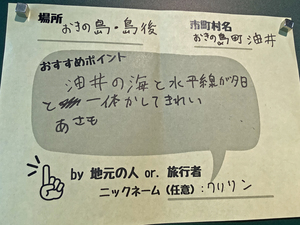 場所
おきの島・島後
市町村名
おきの島町 油井
おすすめポイント
油井の海と水平線が夕日
と 一体かしてきれい
あさも
by 地元の人 or. 旅行者
ニックネーム(任意):クリリン